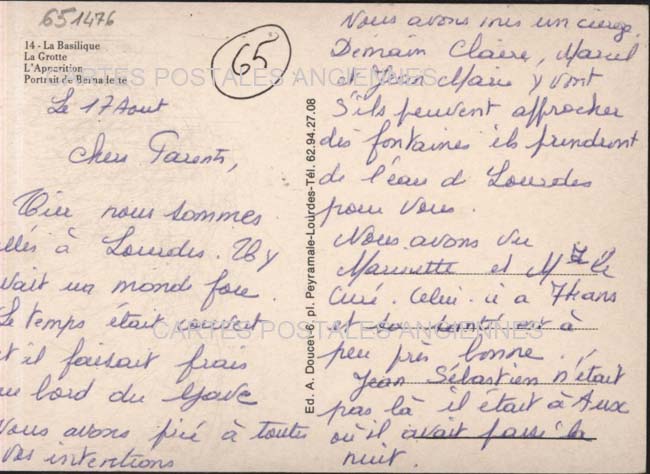 651476
65
14 - La Basilique
La Grotte
L'Apparition
Portrait de Bernadette
CARTES POSTALES ANCIENNES
Le 17 Aout
Chers Parents,
Hier nous sommes
allés à Lourdes. Il y
avait un monde fou.
Le temps était couvert
et il faisait frais
au bord du Gave
Nous avons prié à toutes
vos intentions
Ed. A. Doucet-6, pl. Peyramale-Lourdes-Tél. 62.94.27.08
Nous avons mis un cierge.
Demain Claire, Marcel
et Jean Marie y vont
S'ils peuvent approcher
des fontaines ils prendront
de l'eau de Lourdes
pour vous.
Nous avons vu
Marinette et Mr le
Curé. Celui-ci a 74 ans
et sa santé est à
peu près bonne.
Jean Sébastien n'était
pas là il était à Aux
où il avait passé la
nuit.
CARTES POSTALES ANCIENNES